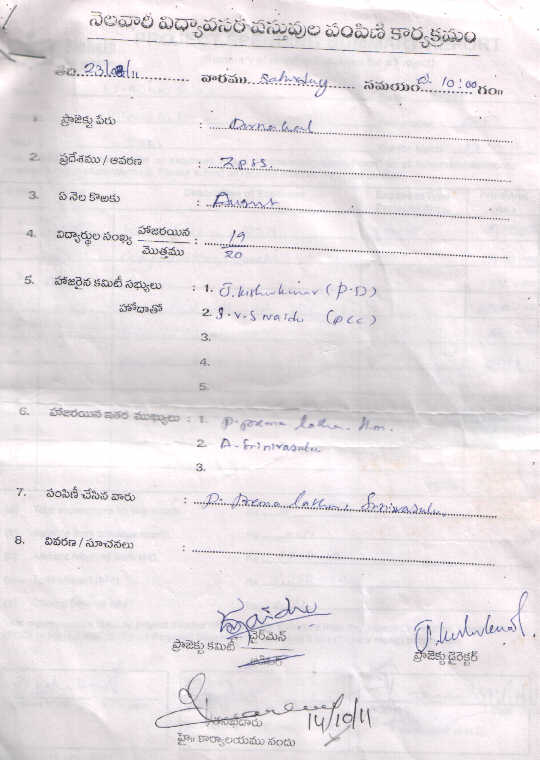 నెలవారీ విద్యావసర వస్తువుల పంపిణీ కార్యక్రమం
తేది 23/08/11 వారము Saturday సమయం 10:00 గం॥
1. ప్రాజెక్టు పేరు :
2. ప్రదేశము / ఆవరణ : ZPSS.
3. ఏ నెల కొఱకు : August
4. విద్యార్థుల సంఖ్య హాజరయిన / మొత్తము : 19 / 20
5. హాజరైన కమిటీ సభ్యులు : 1. J. Kishorkumar (P.D)
హోదాతో 2. J.V.S Naidu (PCC)
3.
4.
5.
6. హాజరయిన ఇతర ముఖ్యులు : 1. P. Prema latha. H.m.
2. A. Srinivasulu
3.
7. పంపిణీ చేసిన వారు : P. Prema latha, Srinivasulu
8. వివరణ / సూచనలు :
ప్రాజెక్టు కమిటీ ఛైర్‌మెన్
J. Kishorkumar
ప్రాజెక్టు డైరెక్టర్
14/10/11
హై॥ కార్యాలయము నందు